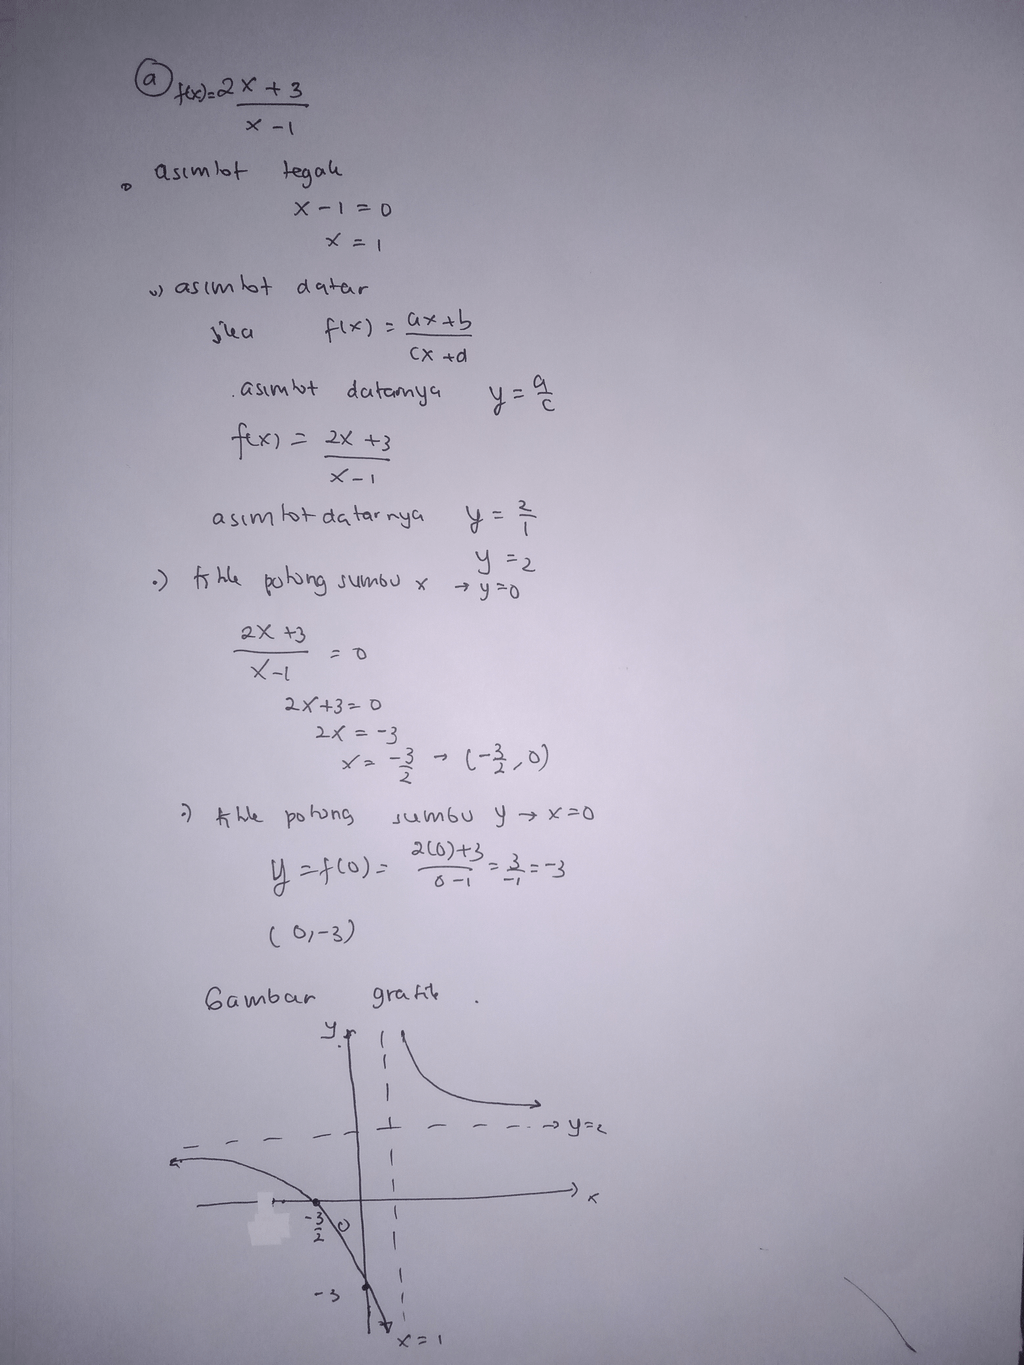 a f(x)=2x+3
x-1
asimtot tegak
x-1=0
x=1
asimtot datar
jika f(x)=ax+b
cx+d
asimtot datarnya y=a/c
f(x)=2x+3
x-1
asimtot datarnya y=2/1
y=2
.) titik potong sumbu x → y=0
2x+3
x-1 =0
2x+3=0
2x=-3
x=-3/2 → (-3/2,0)
.) titik potong sumbu y → x=0
y=f(0)=2(0)+3/0-1=3/-1=-3
(0,-3)
Gambar grafik.
y
→ y=2
x
-3/2 0
-3
x=1